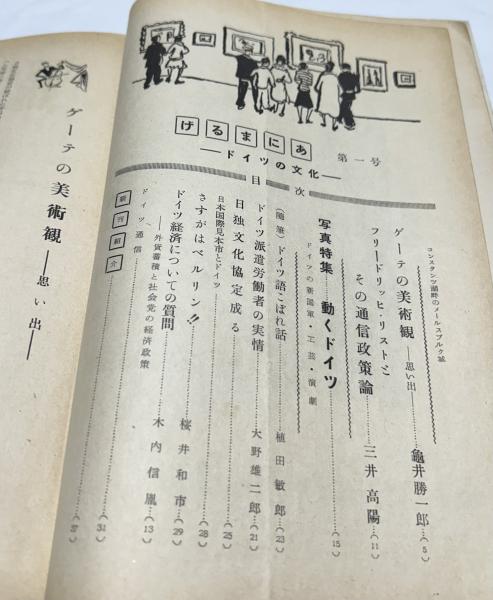 げるまにあ
第一号
―ドイツの文化―
目次
コンスタンツ湖畔のメールスブルク城
ゲーテの美術観―思い出―……亀井勝一郎…(5)
フリードリッヒ・リストと
その通信政策論……三井高陽…(11)
写真特集 動くドイツ……(15)
ドイツの新国軍・工芸・演劇
(随筆)ドイツ語こぼれ話……植田敏郎…(23)
ドイツ派遣労働者の実情……大野雄二郎…(21)
日独文化協定成る……(25)
日本国際見本市とドイツ……(28)
さすがはベルリン!!……桜井和市…(29)
ドイツ経済についての質問……木内信胤…(13)
―外貨蓄積と社会党の経済政策
ドイツ通信……(31)
新刊紹介……(37)
ゲーテの美術観―思い出―